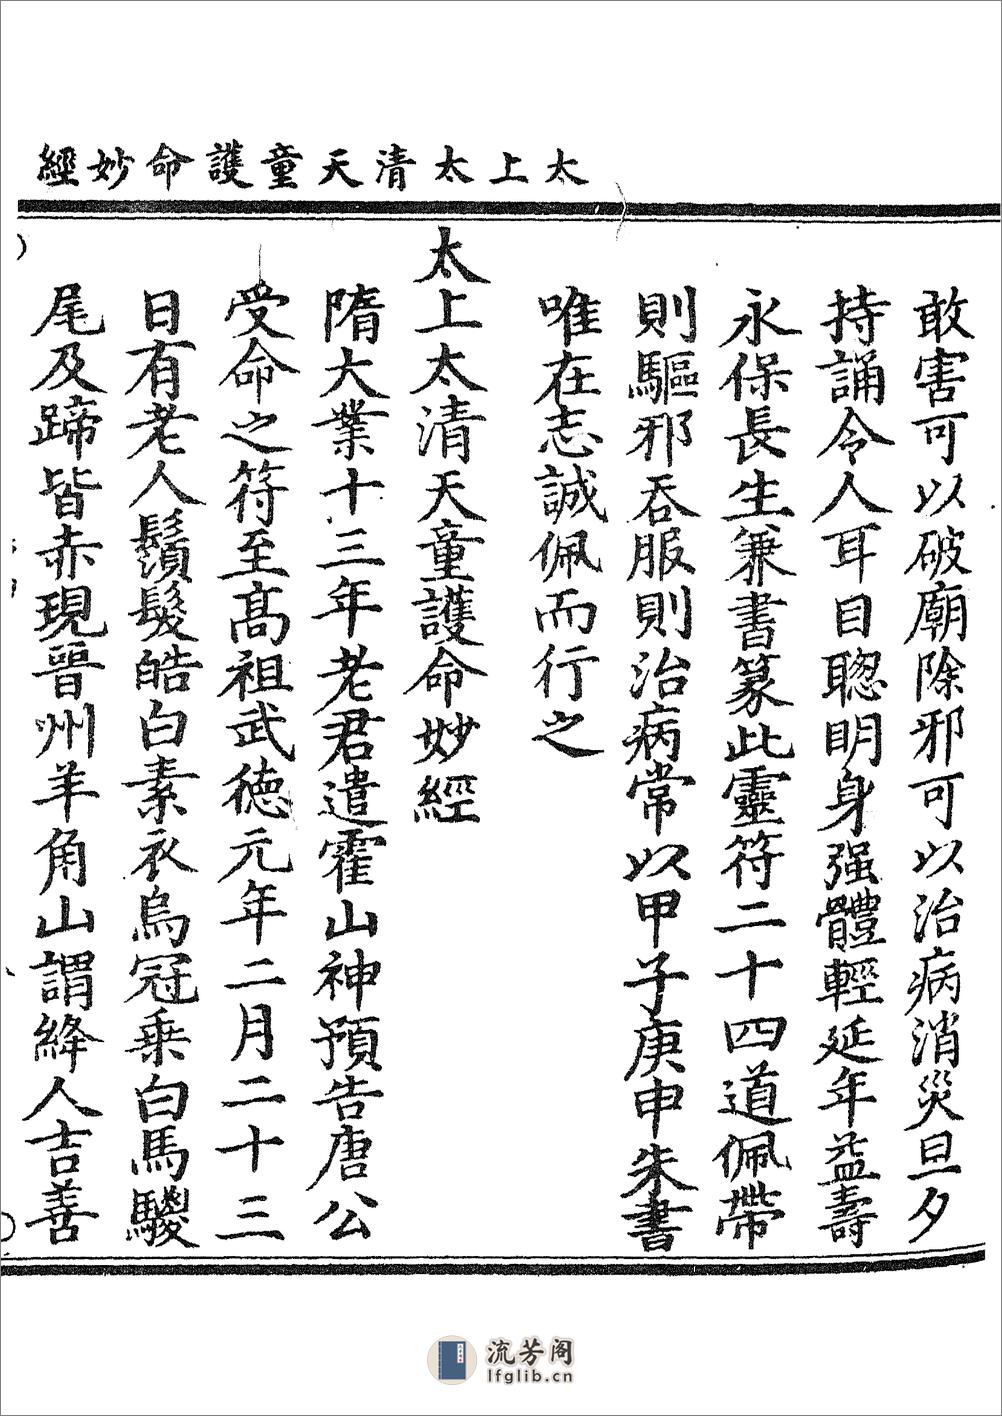 太上太清天童護命妙經
敢害可以破廟除邪可以治病消災旦夕
持誦令人耳目聰明身强體輕延年益壽
永保長生兼書篆此靈符二十四道佩帶
則驅邪吞服則治病常以甲子庚申朱書
唯在志誠佩而行之
太上太清天童護命妙經
隋大業十三年老君遣霍山神預告唐公
受命之符至高祖武德元年二月二十三
日有老人鬚髮皓白素衣烏冠乗白馬騣
尾及蹄皆赤現晉州羊角山謂絳人吉善
流芳阁
lfglib.cn